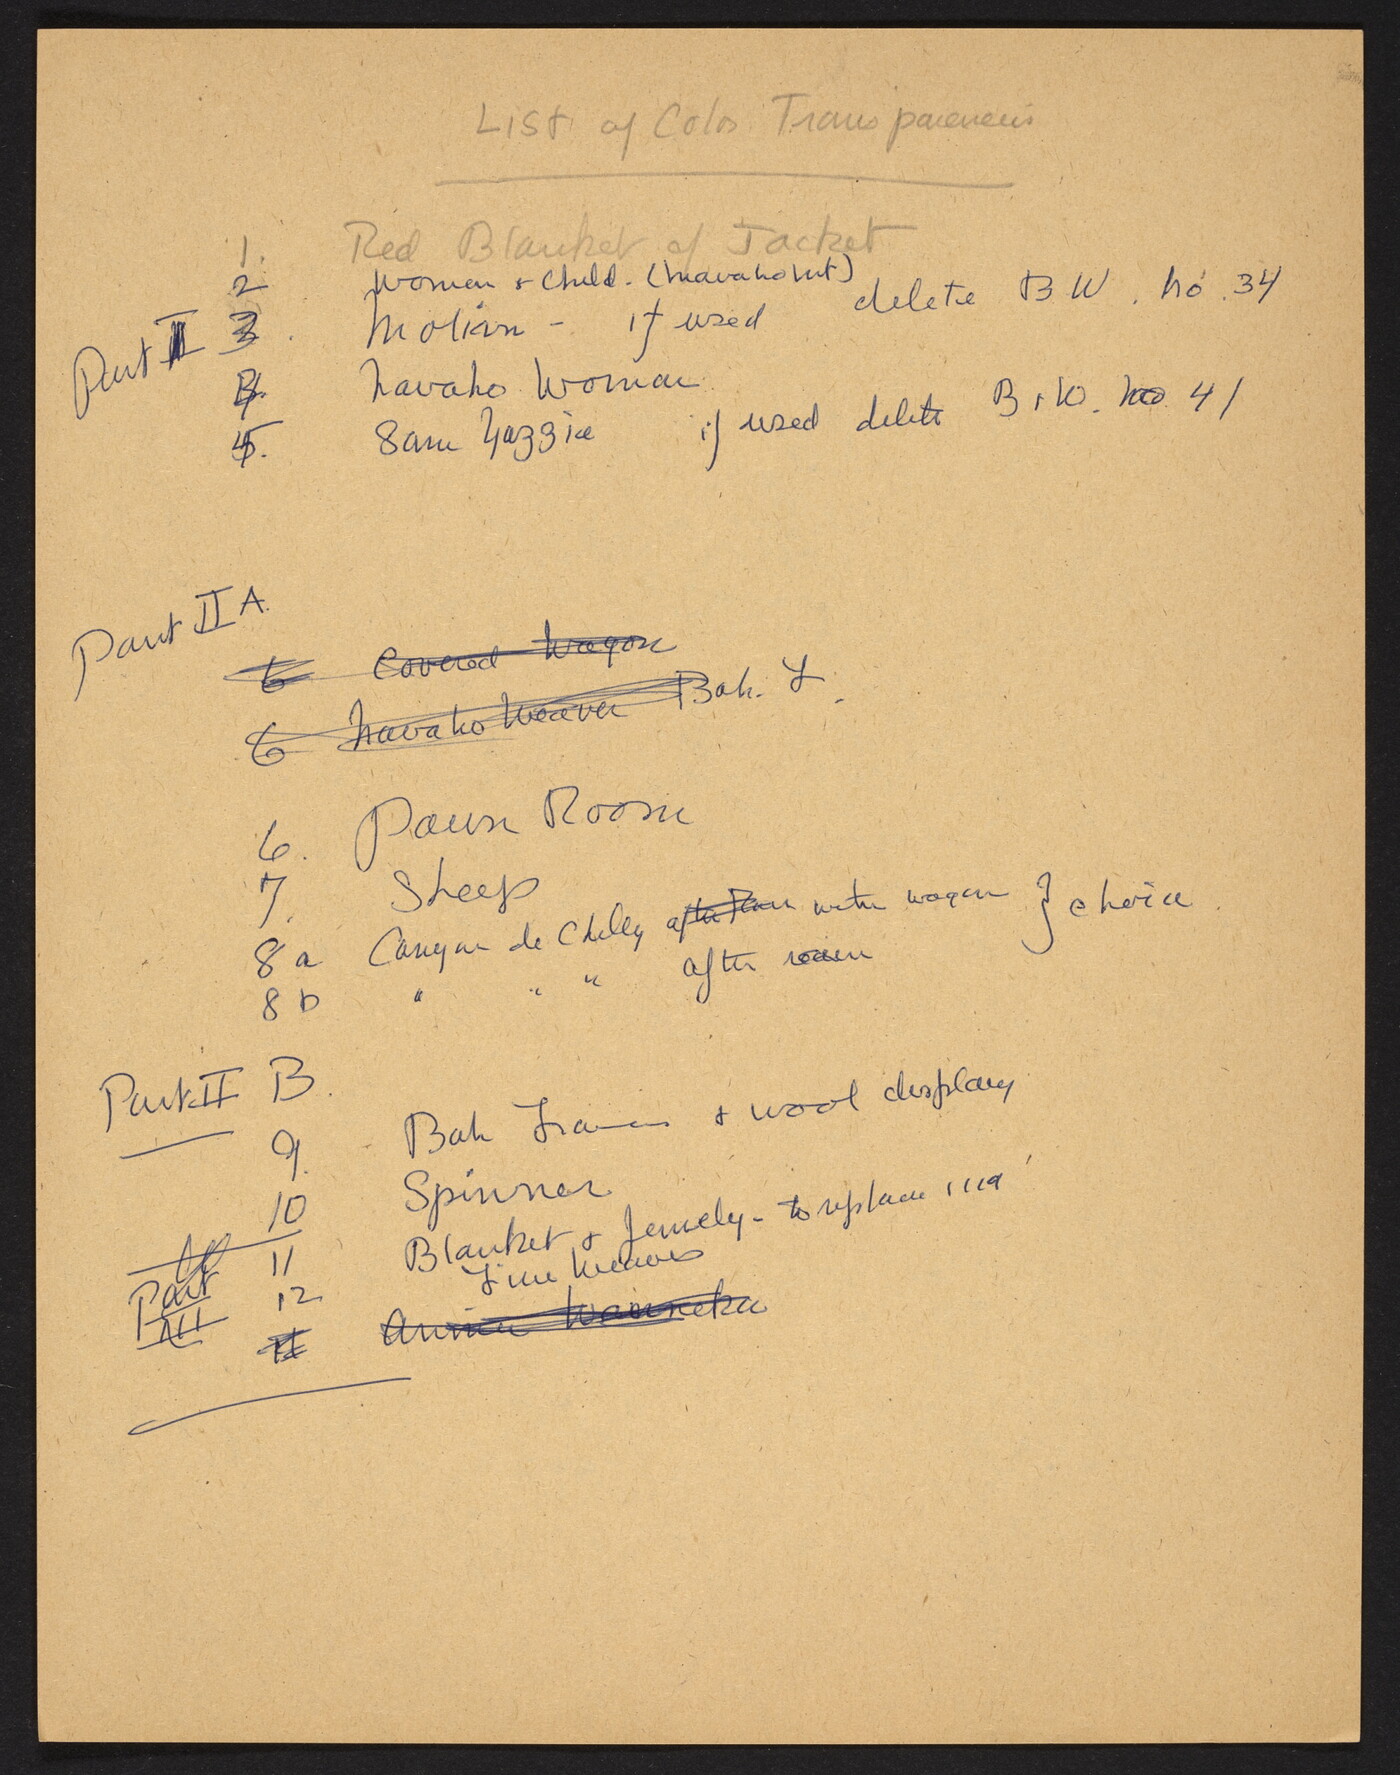 List of Color Transparencies
1. Red Blanket of Jacket
2 Woman & Child. (Navaho Mt)
Part II 3. Motion - if used delete B W. No. 34
4. Navaho Woman
5. Sam Yazzie if used delete B & W. No. 41
Part II A.
6 Covered Wagon
6 Navaho Weaver Bah. Y.
6. Pawn Room
7. Sheep
8 a Canyon de Chelly after rain with wagon } choice.
8 b " " " after rain
Part II B.
9. Bah Francis & wool display
10 Spinner
11 Blanket & Jewely - to replace 119
Part III 12 Fine Weaves
Annie Wauneka